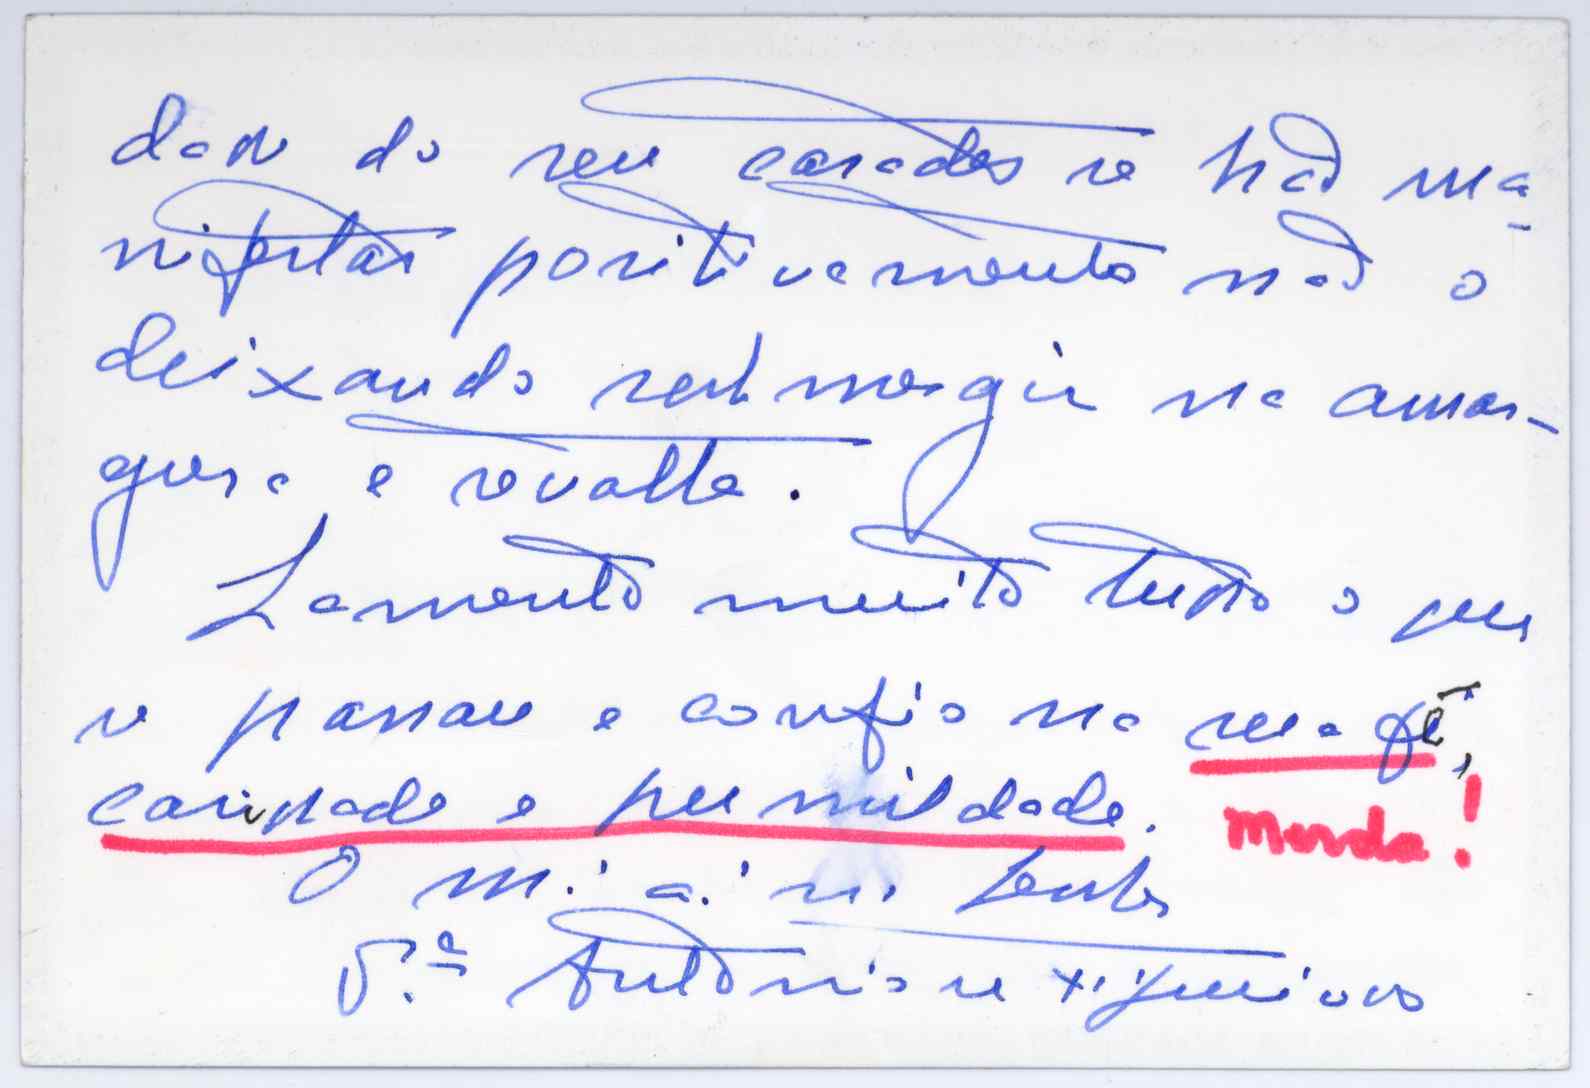 dade do seu carácter se há-de ma-
nifestar positivamente não o
deixando submergir na amar-
gura e revolta.
Lamento muito tudo o que
se passou e confio na sua fé,
caridade e humildade. merda!
O m. a. in
P.e António